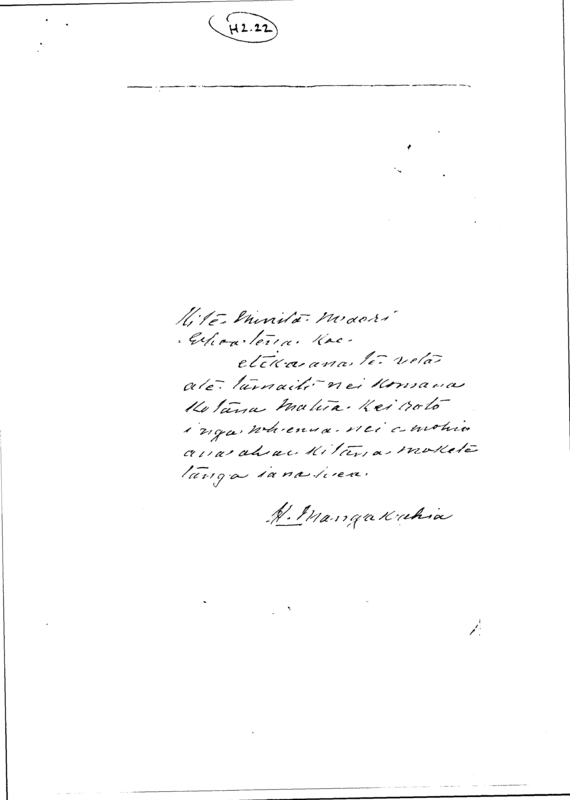 H2.22
Kitē. Minitā. Maori
Ehoa. tēnā. Koe.
etika ana tē retā
atē. tāmaiti nei Komana
Ko tāna Matua. Kei roto
i nga. whenua. nei e mohio
ana ahau Ki tāna. moketē
tānga iana iwea.
H. Mangakahia